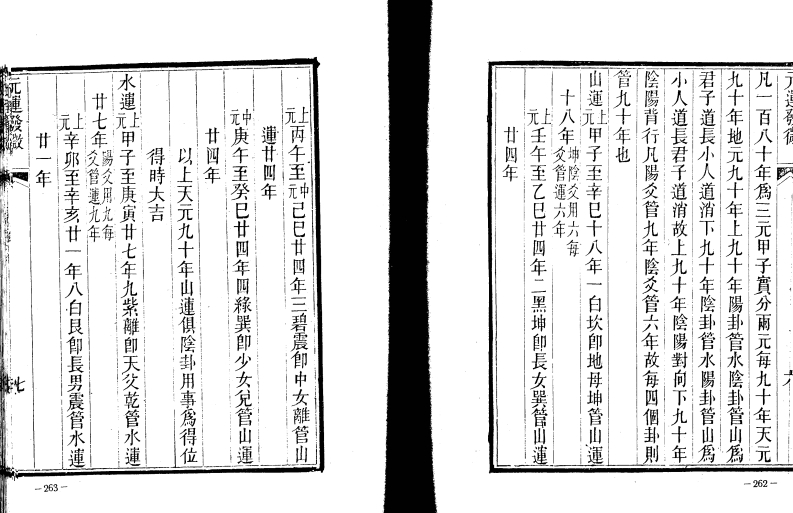 元運發微
凡一百八十年爲三元甲子實分兩元每九十年天元
九十年地元九十年上九十年陽卦管水陰卦管山爲
君子道長小人道消下九十年陰卦管水陽卦管山爲
小人道長君子道消故上九十年陰陽對向下九十年
陰陽背行凡陽爻管九年陰爻管六年故每四個卦則
管九十年也
山運上元甲子至辛巳十八年一白坎卽地母坤管山運
十八年坤陰爻用六每爻管運六年
上元壬午至乙巳廿四年二黑坤卽長女巽管山運
廿四年
六
—262—
上元丙午至中元己巳廿四年三碧震卽中女離管山
運廿四年
中元庚午至癸巳廿四年四綠巽卽少女兌管山運
廿四年
以上天元九十年山運俱陰卦用事爲得位
得時大吉
水運上元甲子至庚寅廿七年九紫離卽天父乾管水運
廿七年陽爻用九每爻管運九年
上元辛卯至辛亥廿一年八白艮卽長男震管水運
廿一年
元運發微
七
—263—